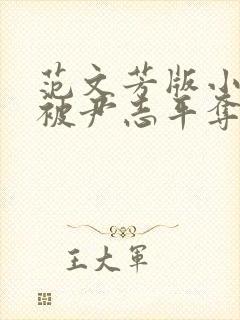 范文芳版小
被尹志平夺
王大军